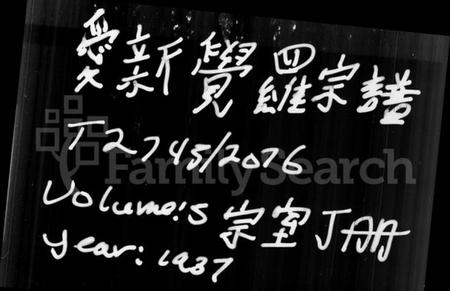 愛新覺羅宗譜
T2745/2076
FamilySearch
Volume:s 宗室 J AA
year: 1937